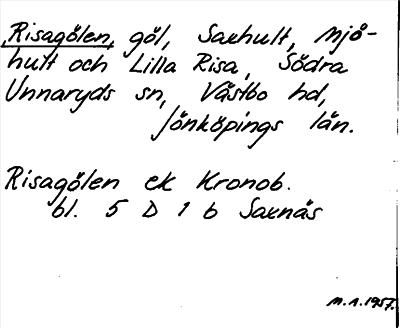 Risagölen, göl, Saxhult, Mjö-
hult och Lilla Risa, Södra
Unnaryds sn, Västbo hd,
Jönköpings län.
Risagölen ek Kronob.
bl. 5 D 1 b Saxnäs
M.A.1957.